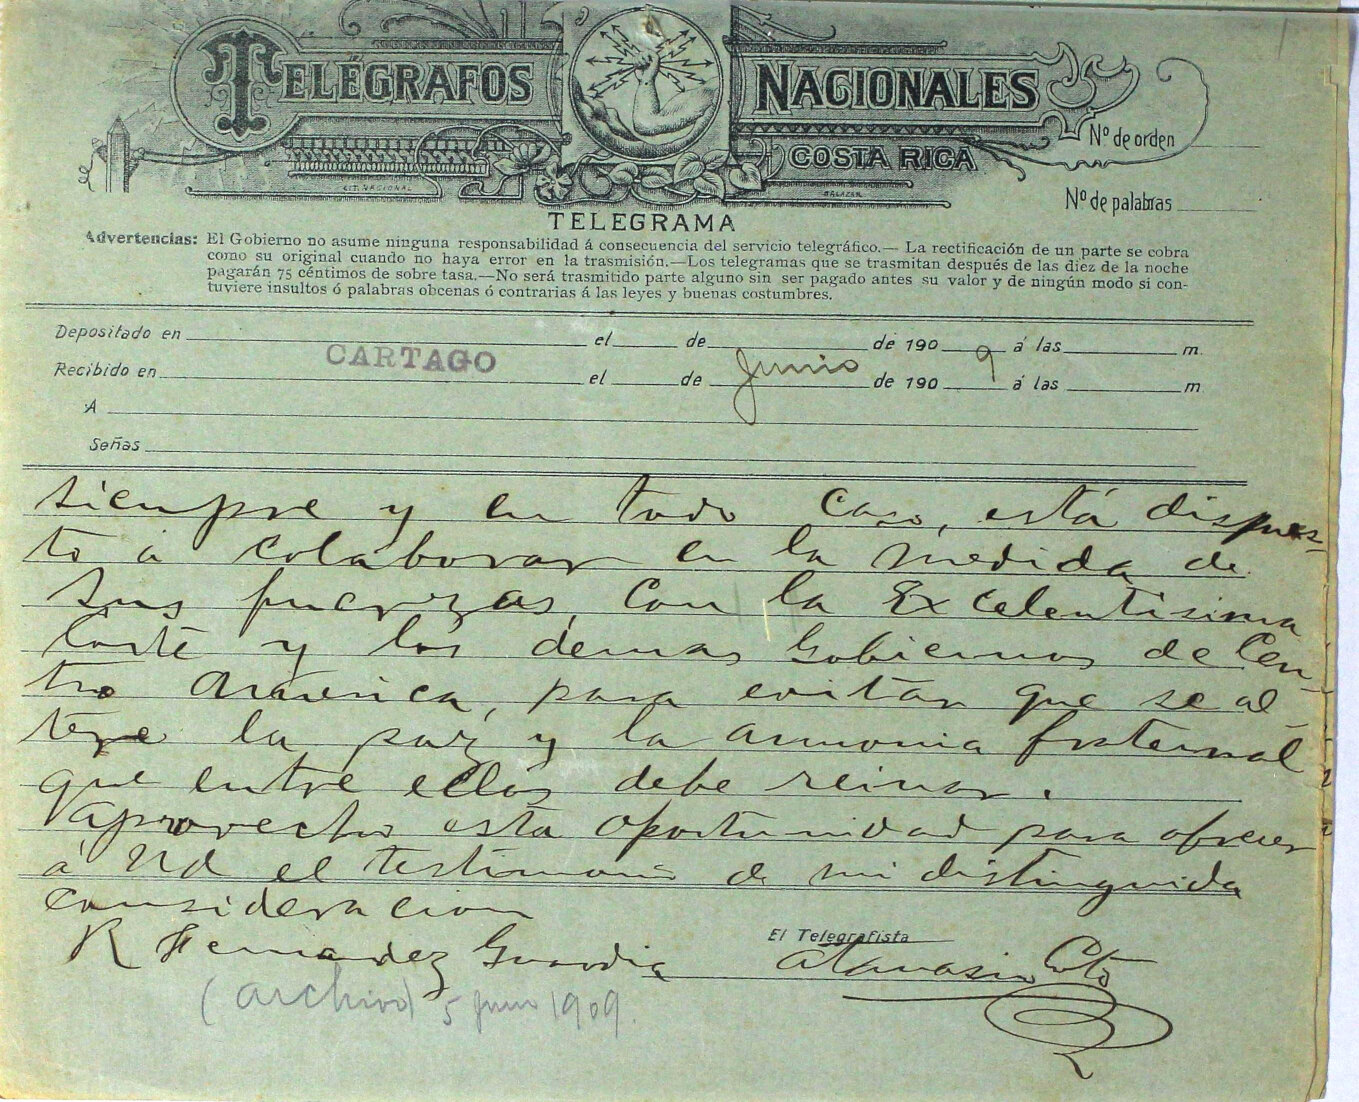 TELÉGRAFOS NACIONALES
COSTA RICA
Nº de orden
LIT. NACIONAL
SALAZAR
Nº de palabras
TELEGRAMA
Advertencias: El Gobierno no asume ninguna responsabilidad á consecuencia del servicio telegráfico.— La rectificación de un parte se cobra
como su original cuando no haya error en la trasmisión.—Los telegramas que se trasmitan después de las diez de la noche
pagarán 75 céntimos de sobre tasa.—No será trasmitido parte alguno sin ser pagado antes su valor y de ningún modo si con-
tuviere insultos ó palabras obcenas ó contrarias á las leyes y buenas costumbres.
Depositado en el de de 190 á las m.
CARTAGO
Recibido en el de Junio de 1909 á las m.
A
Señas
siempre y en todo caso, está dispues-
to á colaborar en la medida de
sus fuerzas, con la Excelentisima
Corte y los demas Gobiernos de Cen-
tro America, para evitar que se al-
tere la paz y la armonia fraternal
que entre ellos debe reinar.
Aprovecho esta oportunidad para ofrecer
á Ud el testimonio de mi distinguida
consideracion
R Fernandez Guardia
El Telegrafista
Atanasio Coto
(archivo) 5 junio 1909.